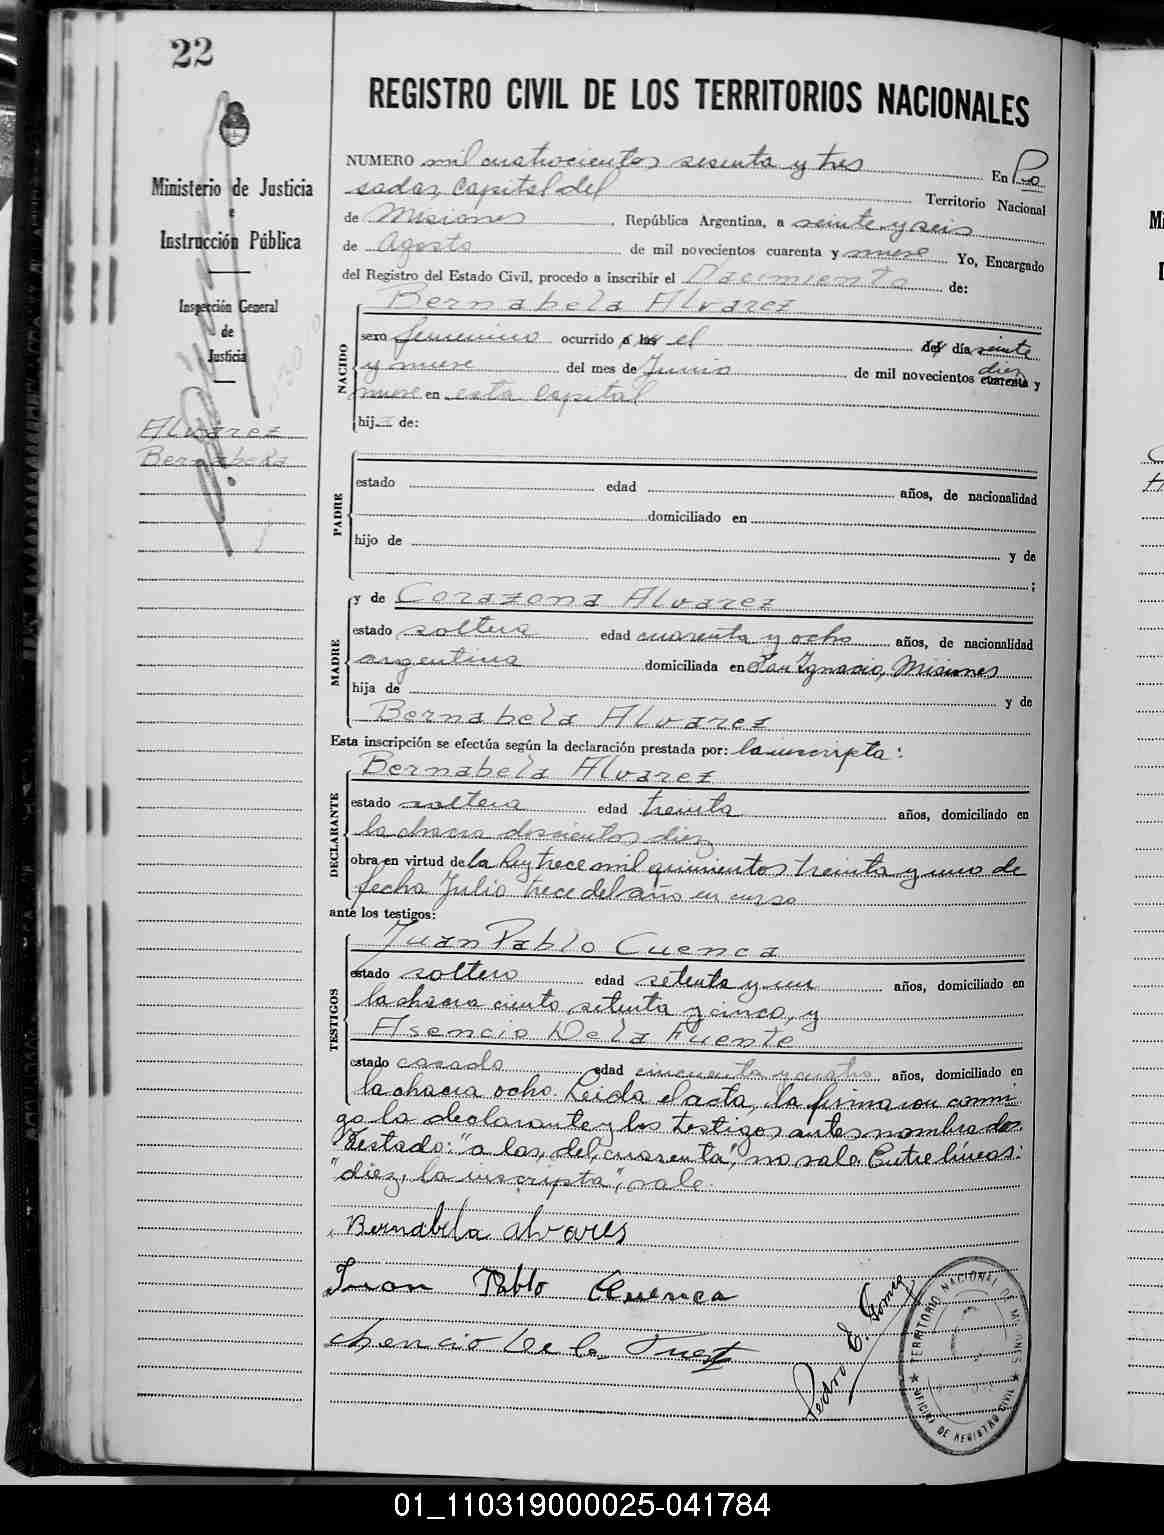 22
REGISTRO CIVIL DE LOS TERRITORIOS NACIONALES
Ministerio de Justicia
e
Instrucción Pública
Inspección General
de
Justicia
Alvarez
Bernabela
NUMERO mil cuatrocientos sesenta y tres En Po
sadas, Capital del Territorio Nacional
de Misiones, República Argentina, a veinte y seis
de Agosto de mil novecientos cuarenta y nueve Yo, Encargado
del Registro del Estado Civil, procedo a inscribir el Nacimiento de:
NACIDO
Bernabela Alvarez
sexo femenino ocurrido a las el del día veinte
y nueve del mes de Junio de mil novecientos cuarenta diez y
nueve en esta Capital
hij de:
PADRE
estado edad años, de nacionalidad
domiciliado en
hijo de y de
;
MADRE
y de Corazona Alvarez
estado soltera edad cuarenta y ocho años, de nacionalidad
argentina domiciliada en San Ignacio, Misiones
hija de y de
Bernabela Alvarez
Esta inscripción se efectúa según la declaración prestada por: la inscripta:
DECLARANTE
Bernabela Alvarez
estado soltera edad treinta años, domiciliado en
la chacra doscientos diez
obra en virtud de la Ley trece mil quinientos treinta y uno de
fecha Julio trece del año en curso
ante los testigos:
TESTIGOS
Juan Pablo Cuenca
estado soltero edad setenta y un años, domiciliado en
la chacra ciento setenta y cinco, y
Asencio De la Fuente
estado casado edad cincuenta y cuatro años, domiciliado en
la chacra ocho. Leida el acta, la firmaron conmi
go la declarante y los testigos antes nombrados.
Testado: "a las, del, cuarenta", no vale. Entre líneas:
"diez, la inscripta", vale.
Bernabela alvares
Juan Pablo Cuenca
Asencio De la Fuent
Pedro E. Gomez
TERRITORIO NACIONAL DE MISIONES
OFICINA DE REGISTRO CIVIL
01_110319000025-041784